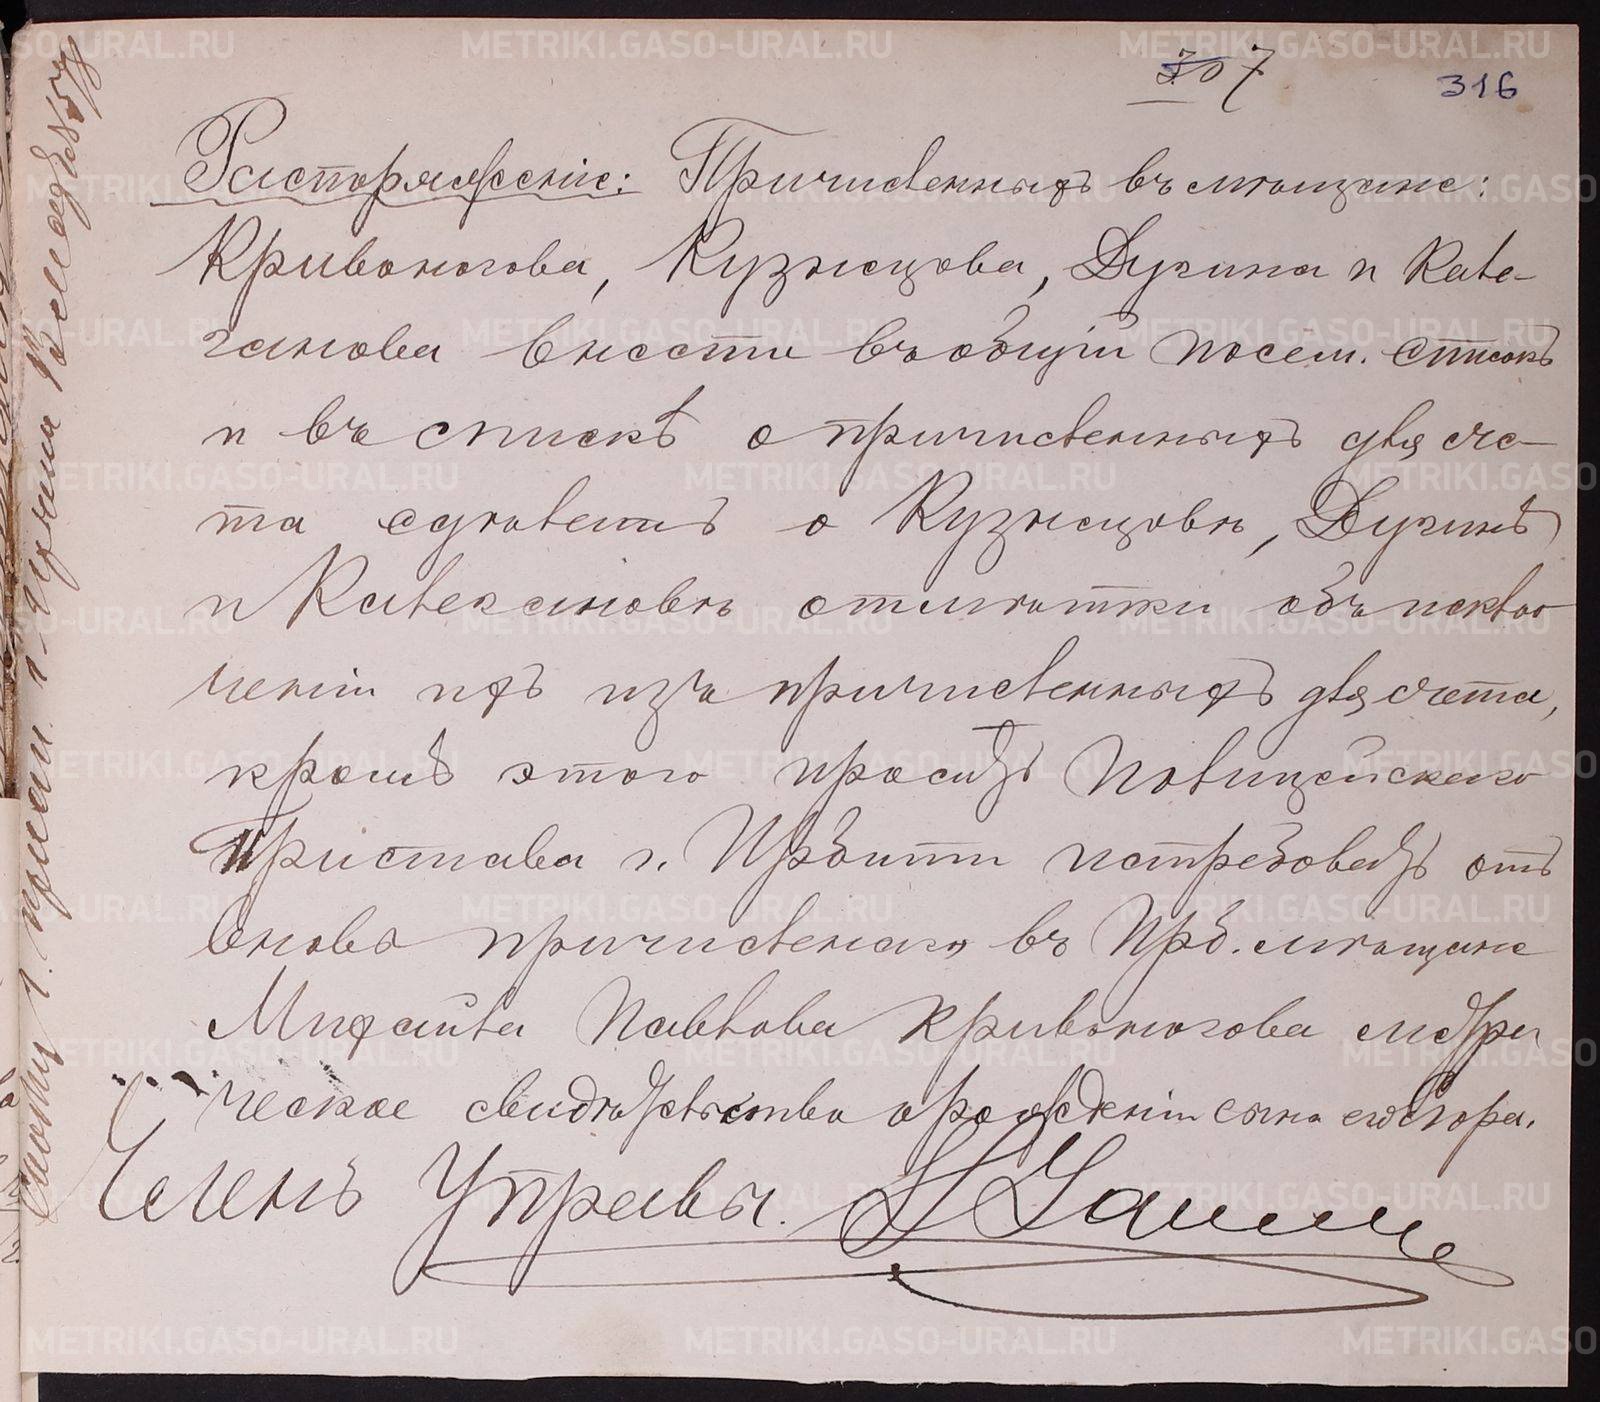 307
316
Распоряженіе: Причисленныхъ въ мѣщане:
Кривоногова, Кузнецова, Дукина и Кале-
ганова внести въ общій посем. списокъ
и въ списокъ о причисленныхъ для сче-
та сдѣлавъ о Кузнецовѣ, Дукинѣ
и Калегановѣ отмѣтки объ исклю-
ченіи ихъ изъ причисленныхъ для счета,
кромѣ этого просить Полицейскаго
Пристава г. Ирбити истребовать отъ
вновь причисленаго въ Ирб. мѣщане
Михаила Павлова Кривоногова метри
ческое свидѣтельство о рожденіи сына его Егора.
Членъ Управы.
METRIKI.GASO-URAL.RU